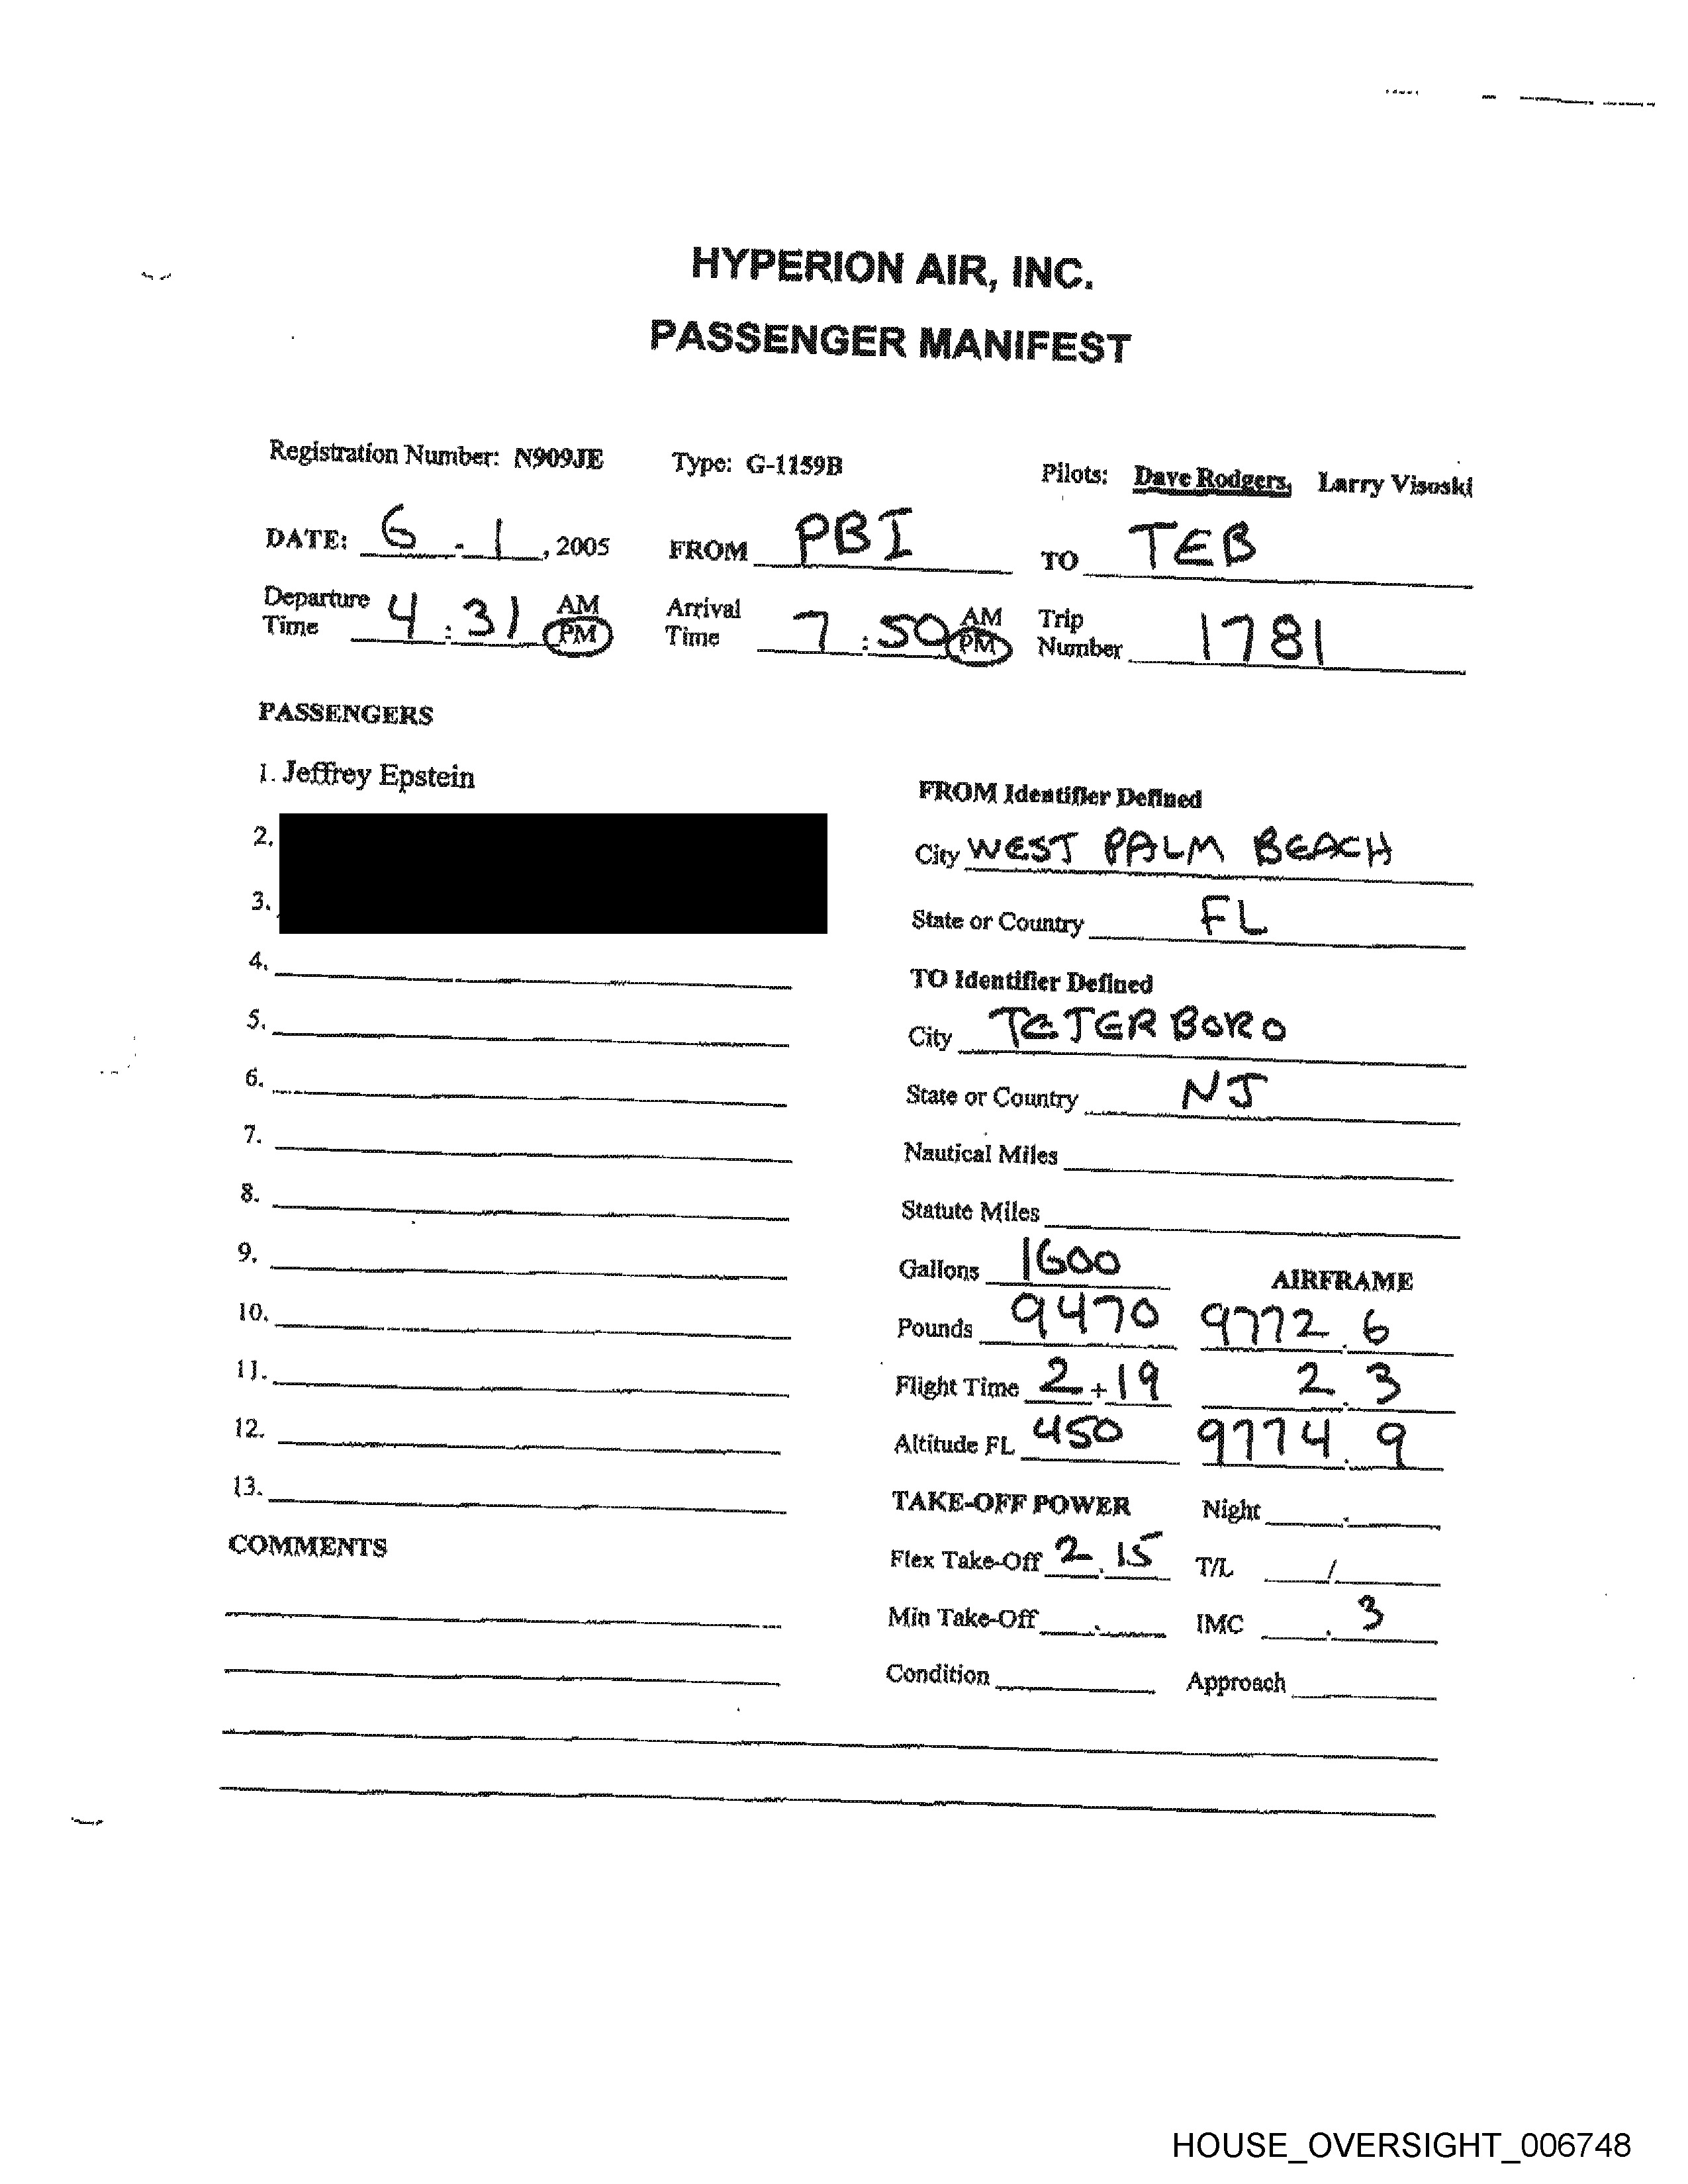 HYPERION AIR, INC.
PASSENGER MANIFEST
Registration Number: N909JE Type: G-1159B Pilots: Dave Rodgers, Larry Visoski
DATE: 6 - 1, 2005 FROM PBI TO TEB
Departure Time 4:31 AM PM Arrival Time 7:50 AM PM Trip Number 1781
PASSENGERS
1. Jeffrey Epstein
2.
3.
4.
5.
6.
7.
8.
9.
10.
11.
12.
13.
COMMENTS
FROM Identifier Defined
City WEST PALM BEACH
State or Country FL
TO Identifier Defined
City TETERBORO
State or Country NJ
Nautical Miles
Statute Miles
Gallons 1600 AIRFRAME
Pounds 9470 9772.6
Flight Time 2+19 2.3
Altitude FL 450 9774.9
TAKE-OFF POWER Night .
Flex Take-Off 2.15 T/L /
Min Take-Off . IMC .3
Condition Approach
HOUSE_OVERSIGHT_006748